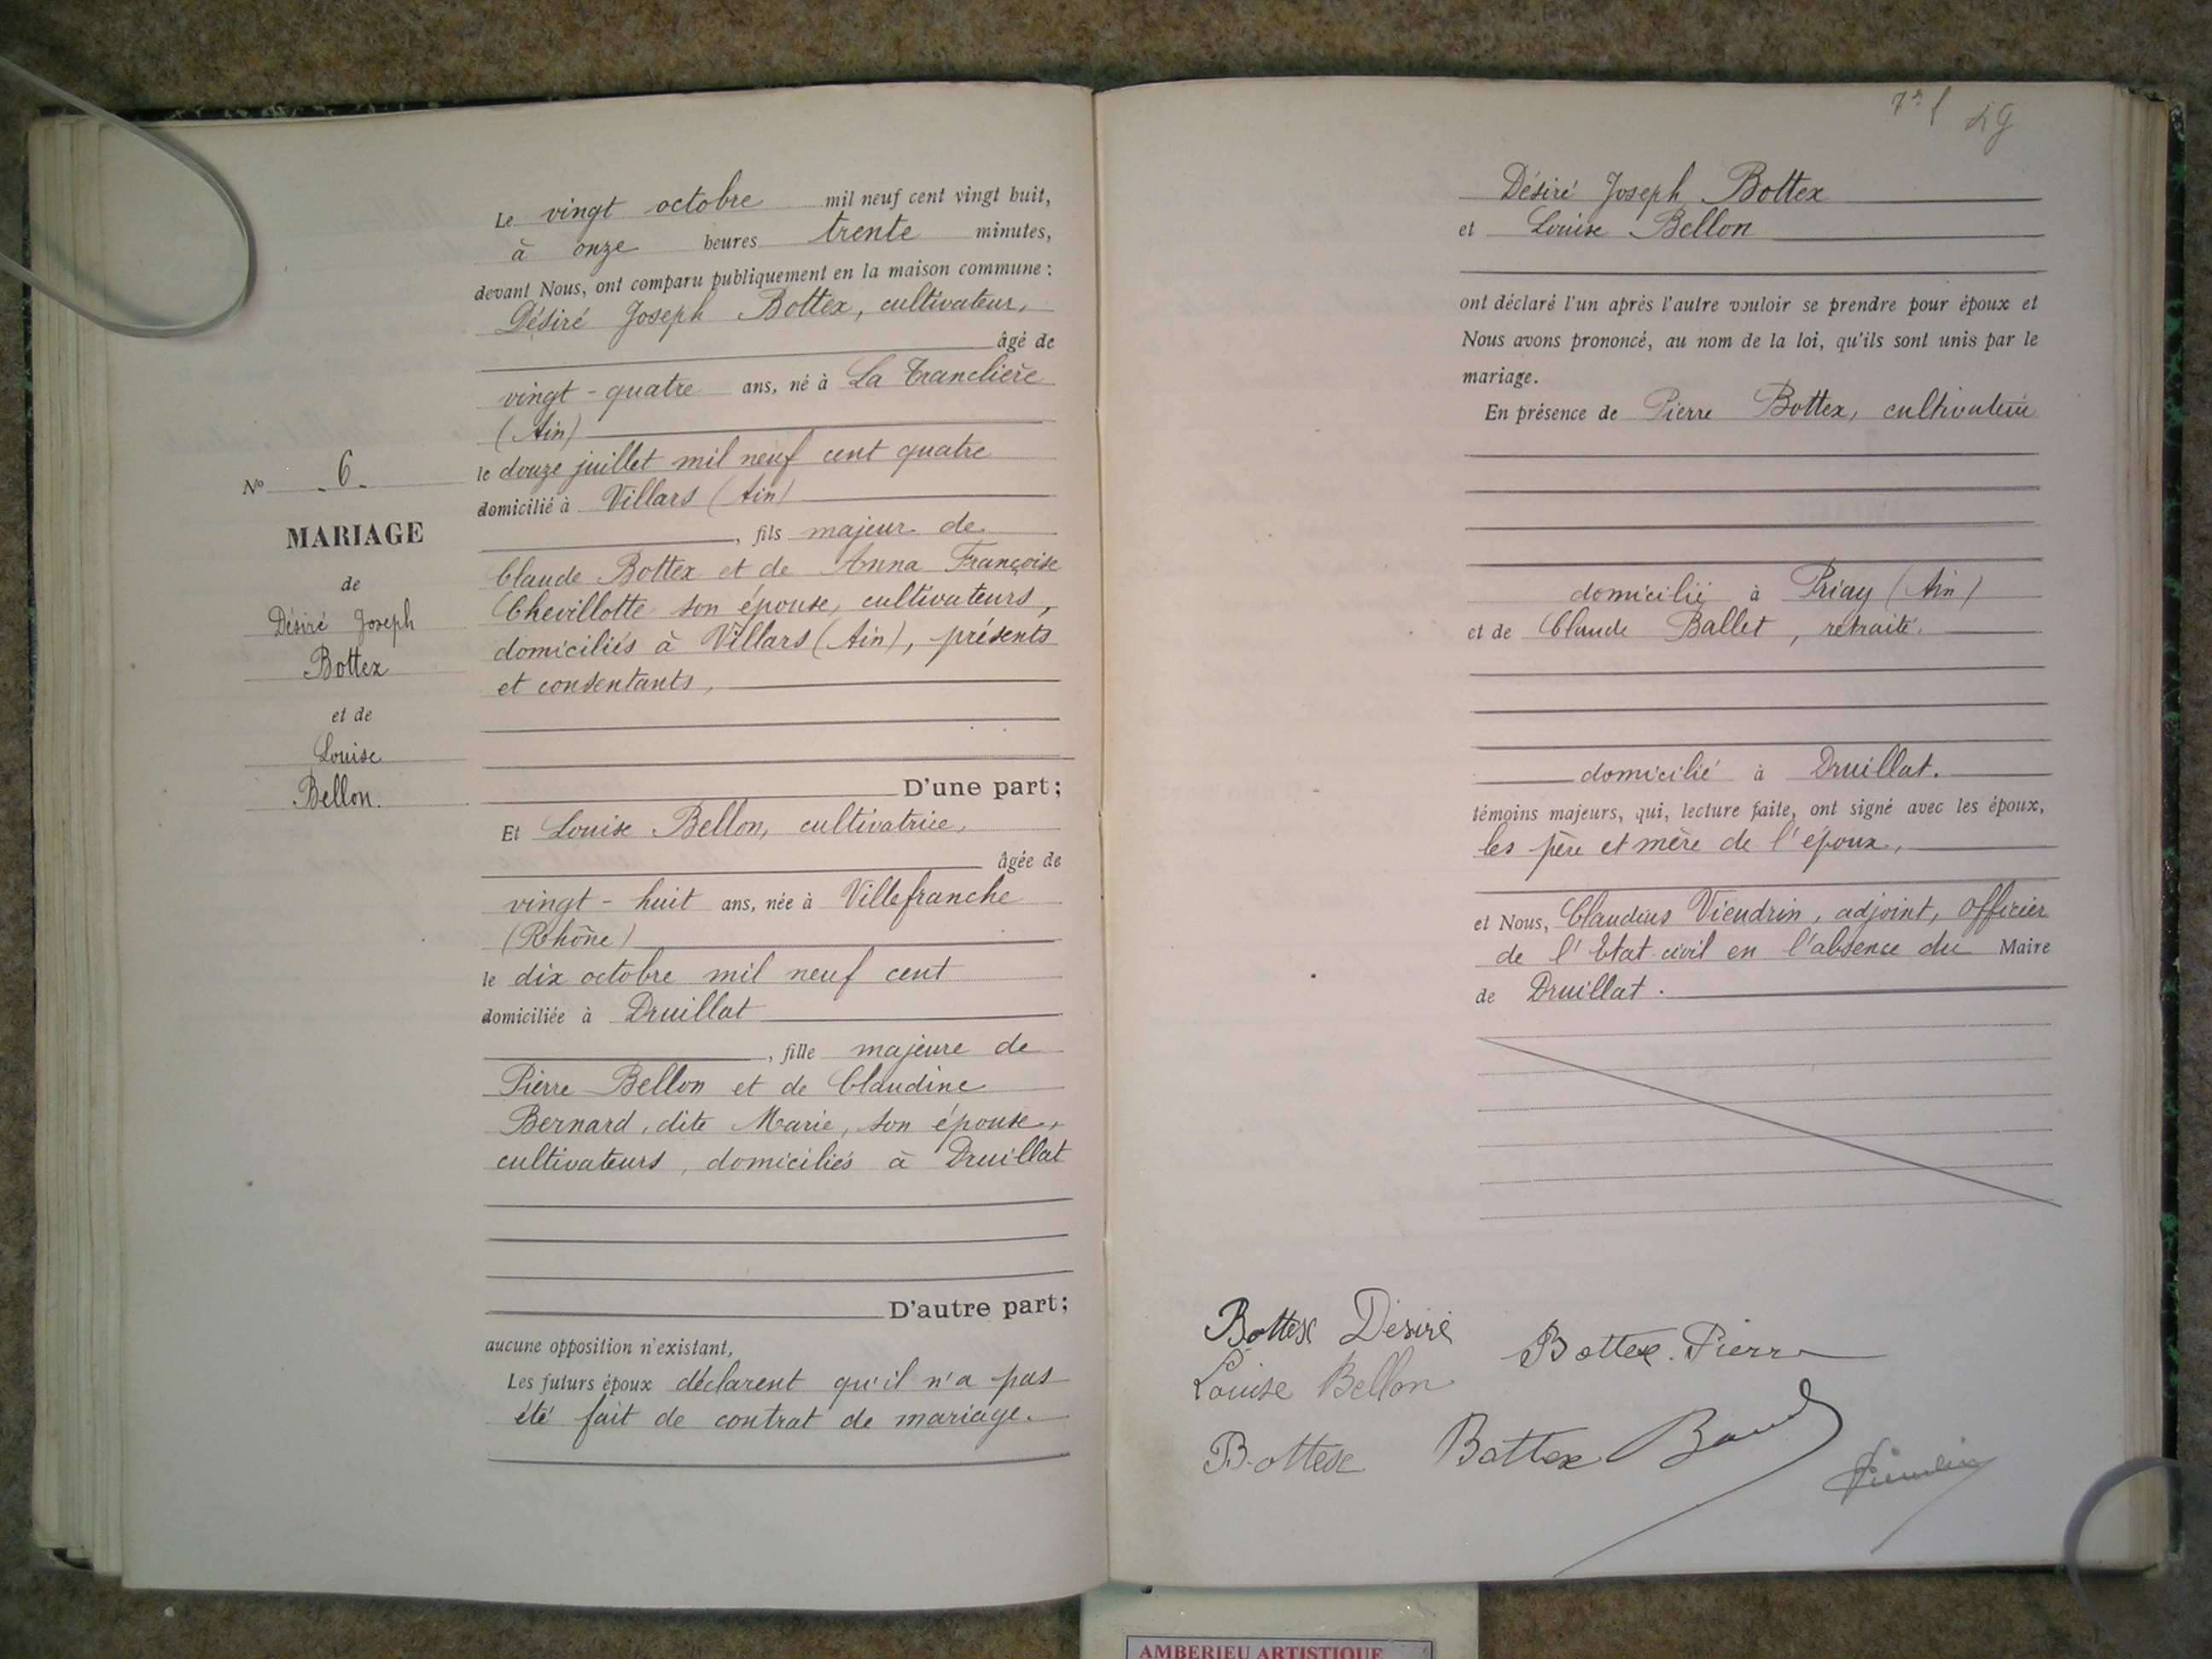 N° 6
MARIAGE
de
Désiré Joseph
Bottex
et de
Louise
Bellon.
Le vingt octobre mil neuf cent vingt huit,
à onze heures trente minutes,
devant Nous, ont comparu publiquement en la maison commune :
Désiré Joseph Bottex, cultivateur,
âgé de
vingt-quatre ans, né à La Tranclière
(Ain)
le douze juillet mil neuf cent quatre
domicilié à Villars (Ain)
, fils majeur de
Claude Bottex et de Anna Françoise
Chevillotte son épouse, cultivateurs,
domiciliés à Villars (Ain), présents
et consentants,
D'une part;
Et Louise Bellon, cultivatrice,
âgée de
vingt-huit ans, née à Villefranche
(Rhône)
le dix octobre mil neuf cent
domiciliée à Druillat
, fille majeure de
Pierre Bellon et de Claudine
Bernard, dite Marie, son épouse,
cultivateurs, domiciliés à Druillat
D'autre part;
aucune opposition n'existant,
Les futurs époux déclarent qu'il n'a pas
été fait de contrat de mariage.
Désiré Joseph Bottex
et Louise Bellon
ont déclaré l'un après l'autre vouloir se prendre pour époux et
Nous avons prononcé, au nom de la loi, qu'ils sont unis par le
mariage.
En présence de Pierre Bottex, cultivateur
domicilié à Priay (Ain)
et de Claude Ballet, retraité.
domicilié à Druillat.
témoins majeurs, qui, lecture faite, ont signé avec les époux,
les père et mère de l'époux,
et Nous, Claudius Viendrin, adjoint, officier
de l'Etat civil en l'absence du Maire
de Druillat.
Bottex Désiré
Bottex. Pierre
Louise Bellon
Bottex
Bottex
AMBERIEU ARTISTIQUE